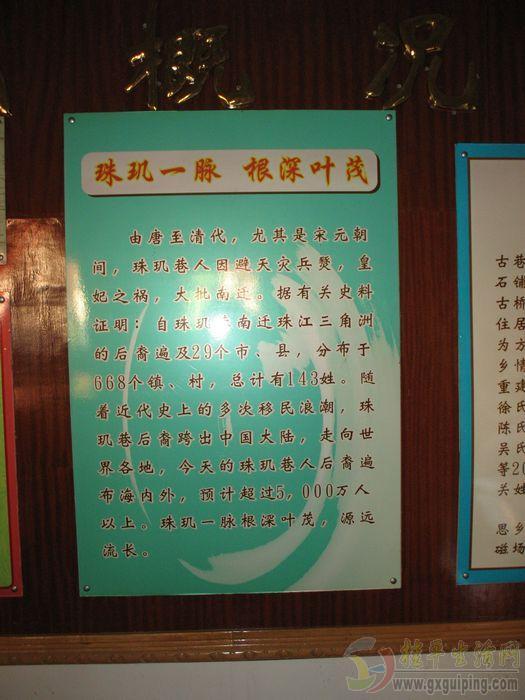 概况
珠玑一脉 根深叶茂
由唐至清代，尤其是宋元朝
间，珠玑巷人因避天灾兵燹，皇
妃之祸，大批南迁。据有关史料
证明：自珠玑巷南迁珠江三角洲
的后裔遍及29个市、县，分布于
668个镇、村，总计有143姓。随
着近代史上的多次移民浪潮，珠
玑巷后裔跨出中国大陆，走向世
界各地，今天的珠玑巷人后裔遍
布海内外，预计超过5，000万人
以上。珠玑一脉根深叶茂，源远
流长。
古巷
石铺
古桥
住居
为方
乡情
重建
徐氏
陈氏
吴氏
等20
关姓
思乡
磁场
桂平生活网
www.gxguiping.com